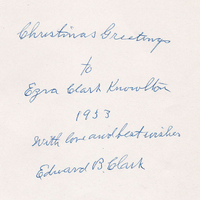 Christmas Greetings
to
Ezra Clark Knowlton
1953
With love and best wishes
Edward B Clark